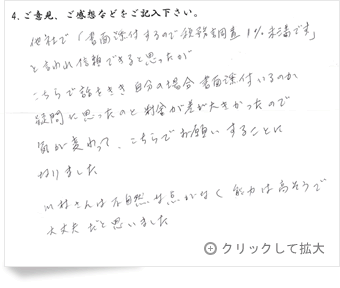 4. ご意見、ご感想などをご記入下さい。
他社で「書面添付するので税務調査1%未満です」
と言われ信頼できると思ったが
こちらで話をきき自分の場合書面添付いるのか
疑問に思ったのと料金が差が大きかったので
気が変わって、こちらでお願いすることに
なりました
川村さんは不自然な点がなく能力は高そうで
大丈夫だと思いました
クリックして拡大